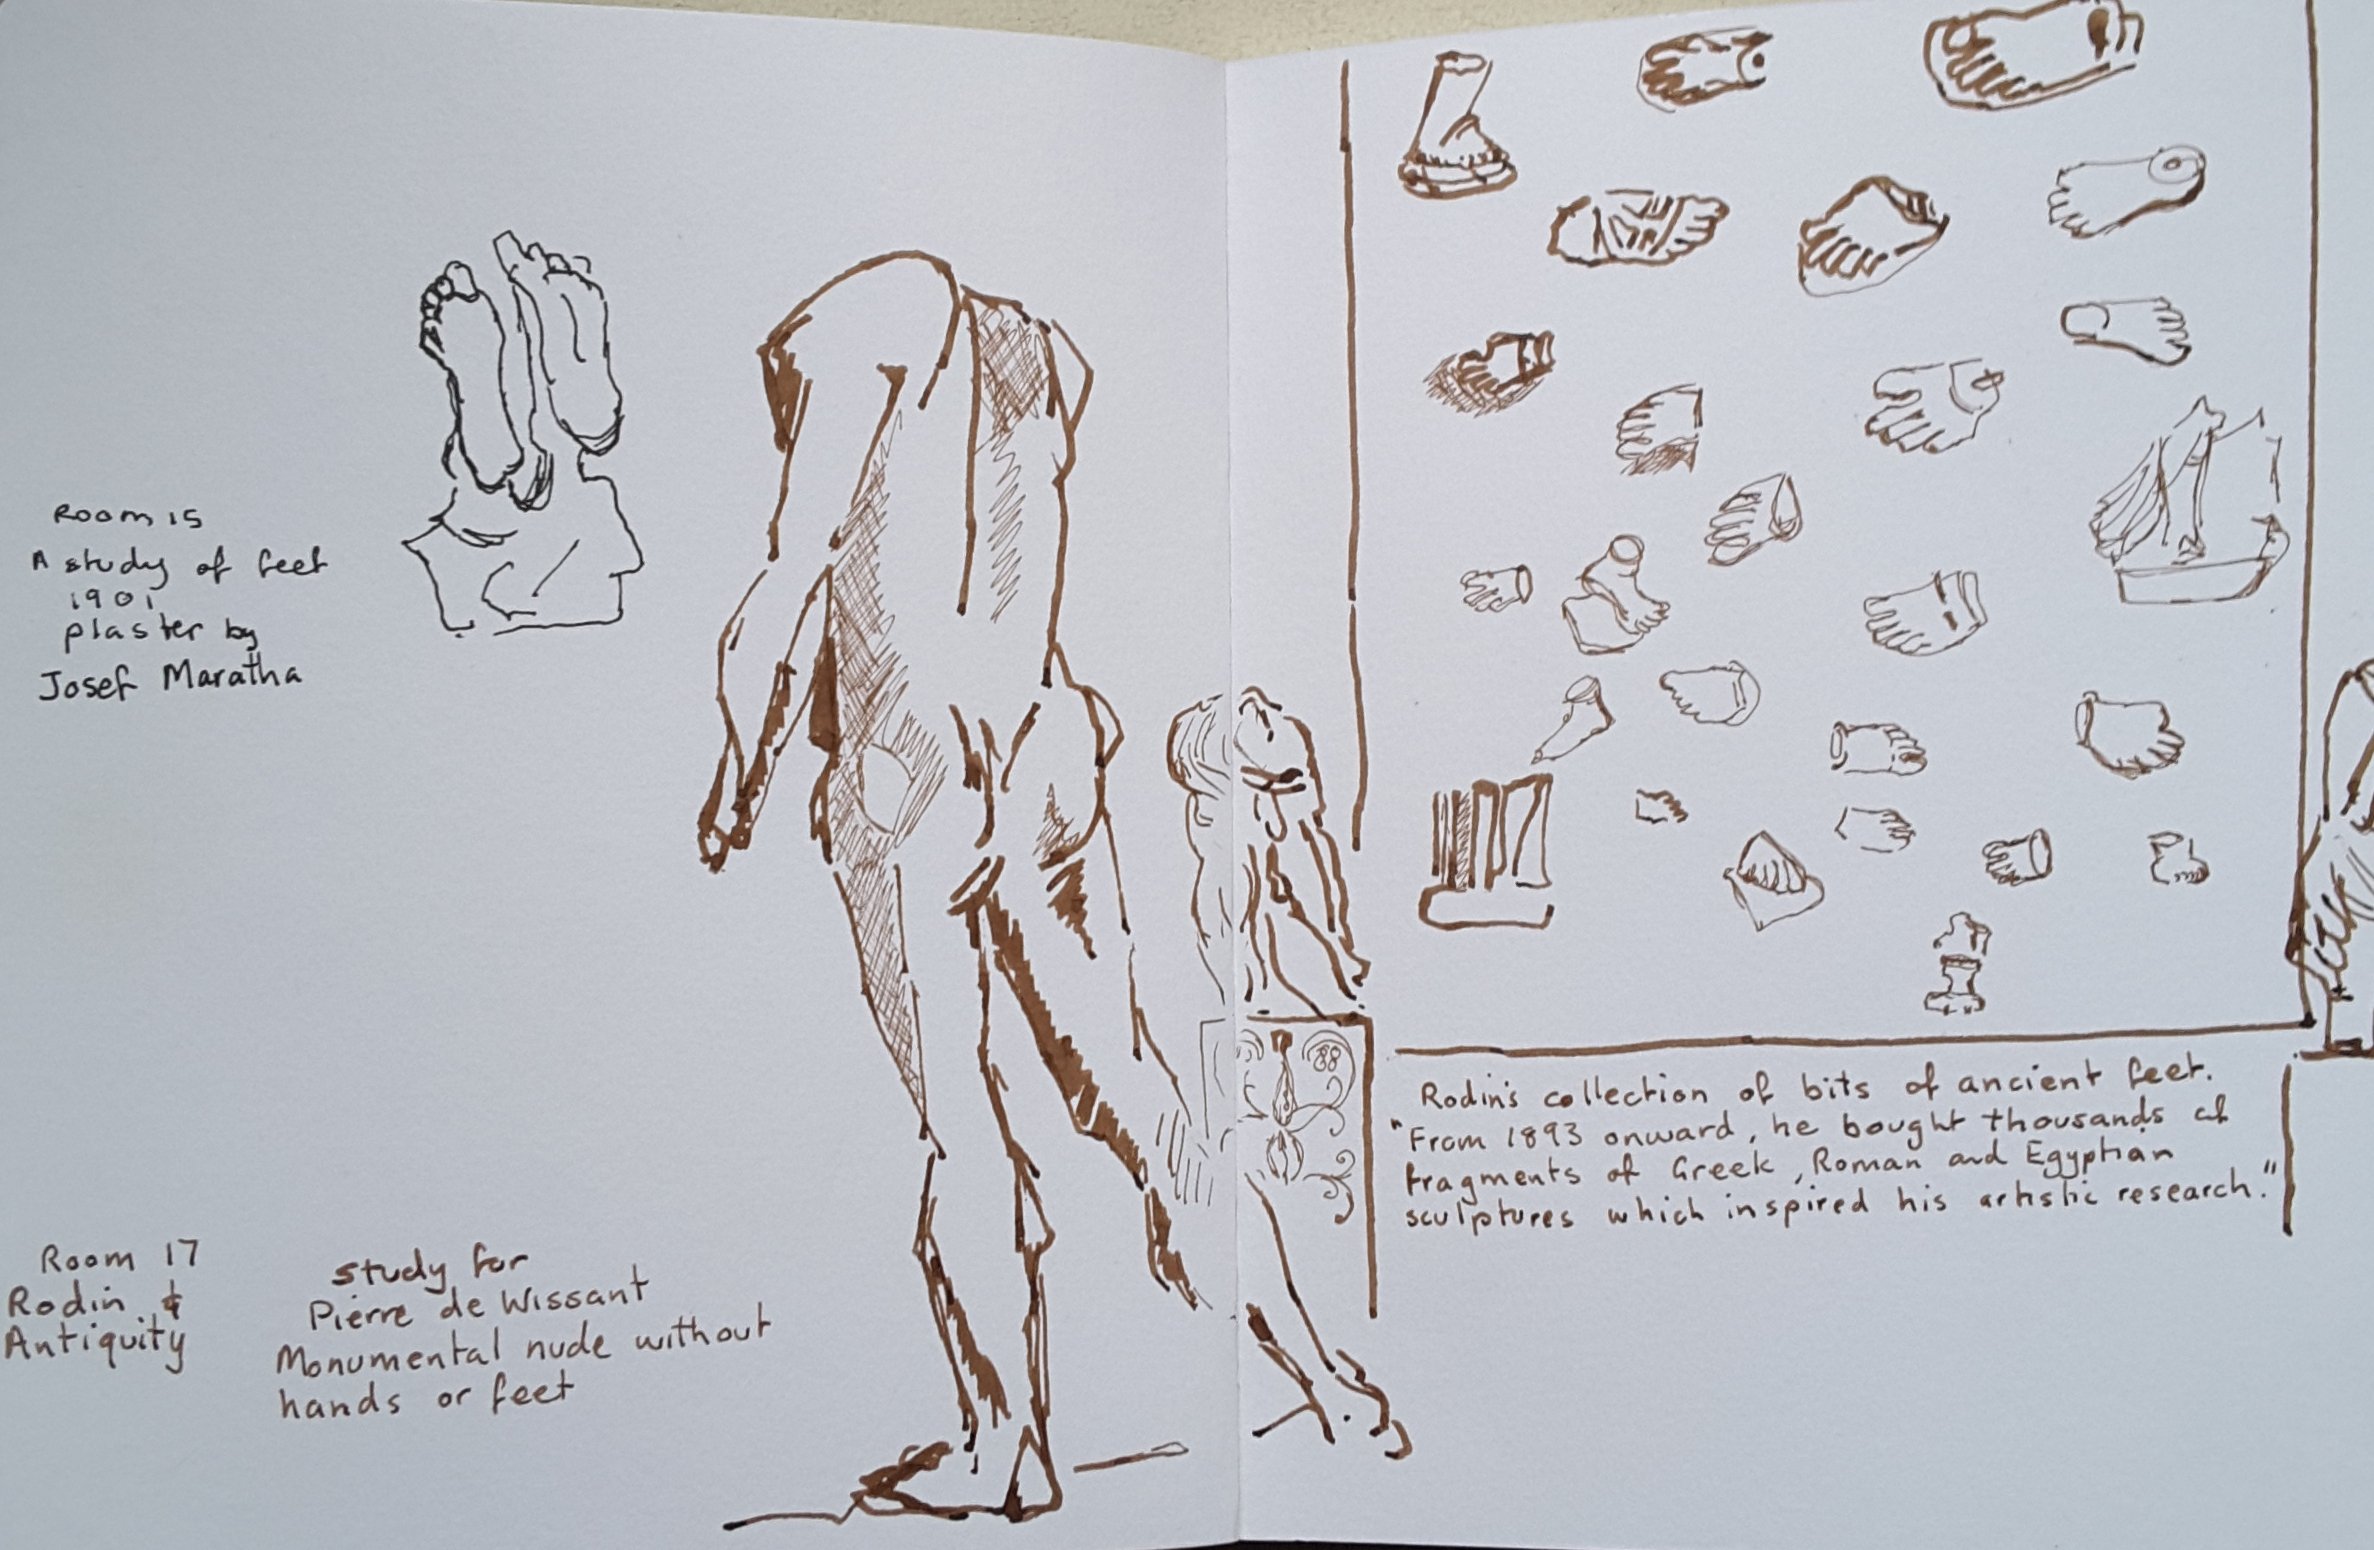 Room 15
A study of feet
1901
plaster by
Josef Maratha
Room 17
Rodin &
Antiquity
study for
Pierre de Wissant
Monumental nude without
hands or feet
Rodin's collection of bits of ancient feet.
"From 1893 onward, he bought thousands of
fragments of Greek, Roman and Egyptian
sculptures which inspired his artistic research."